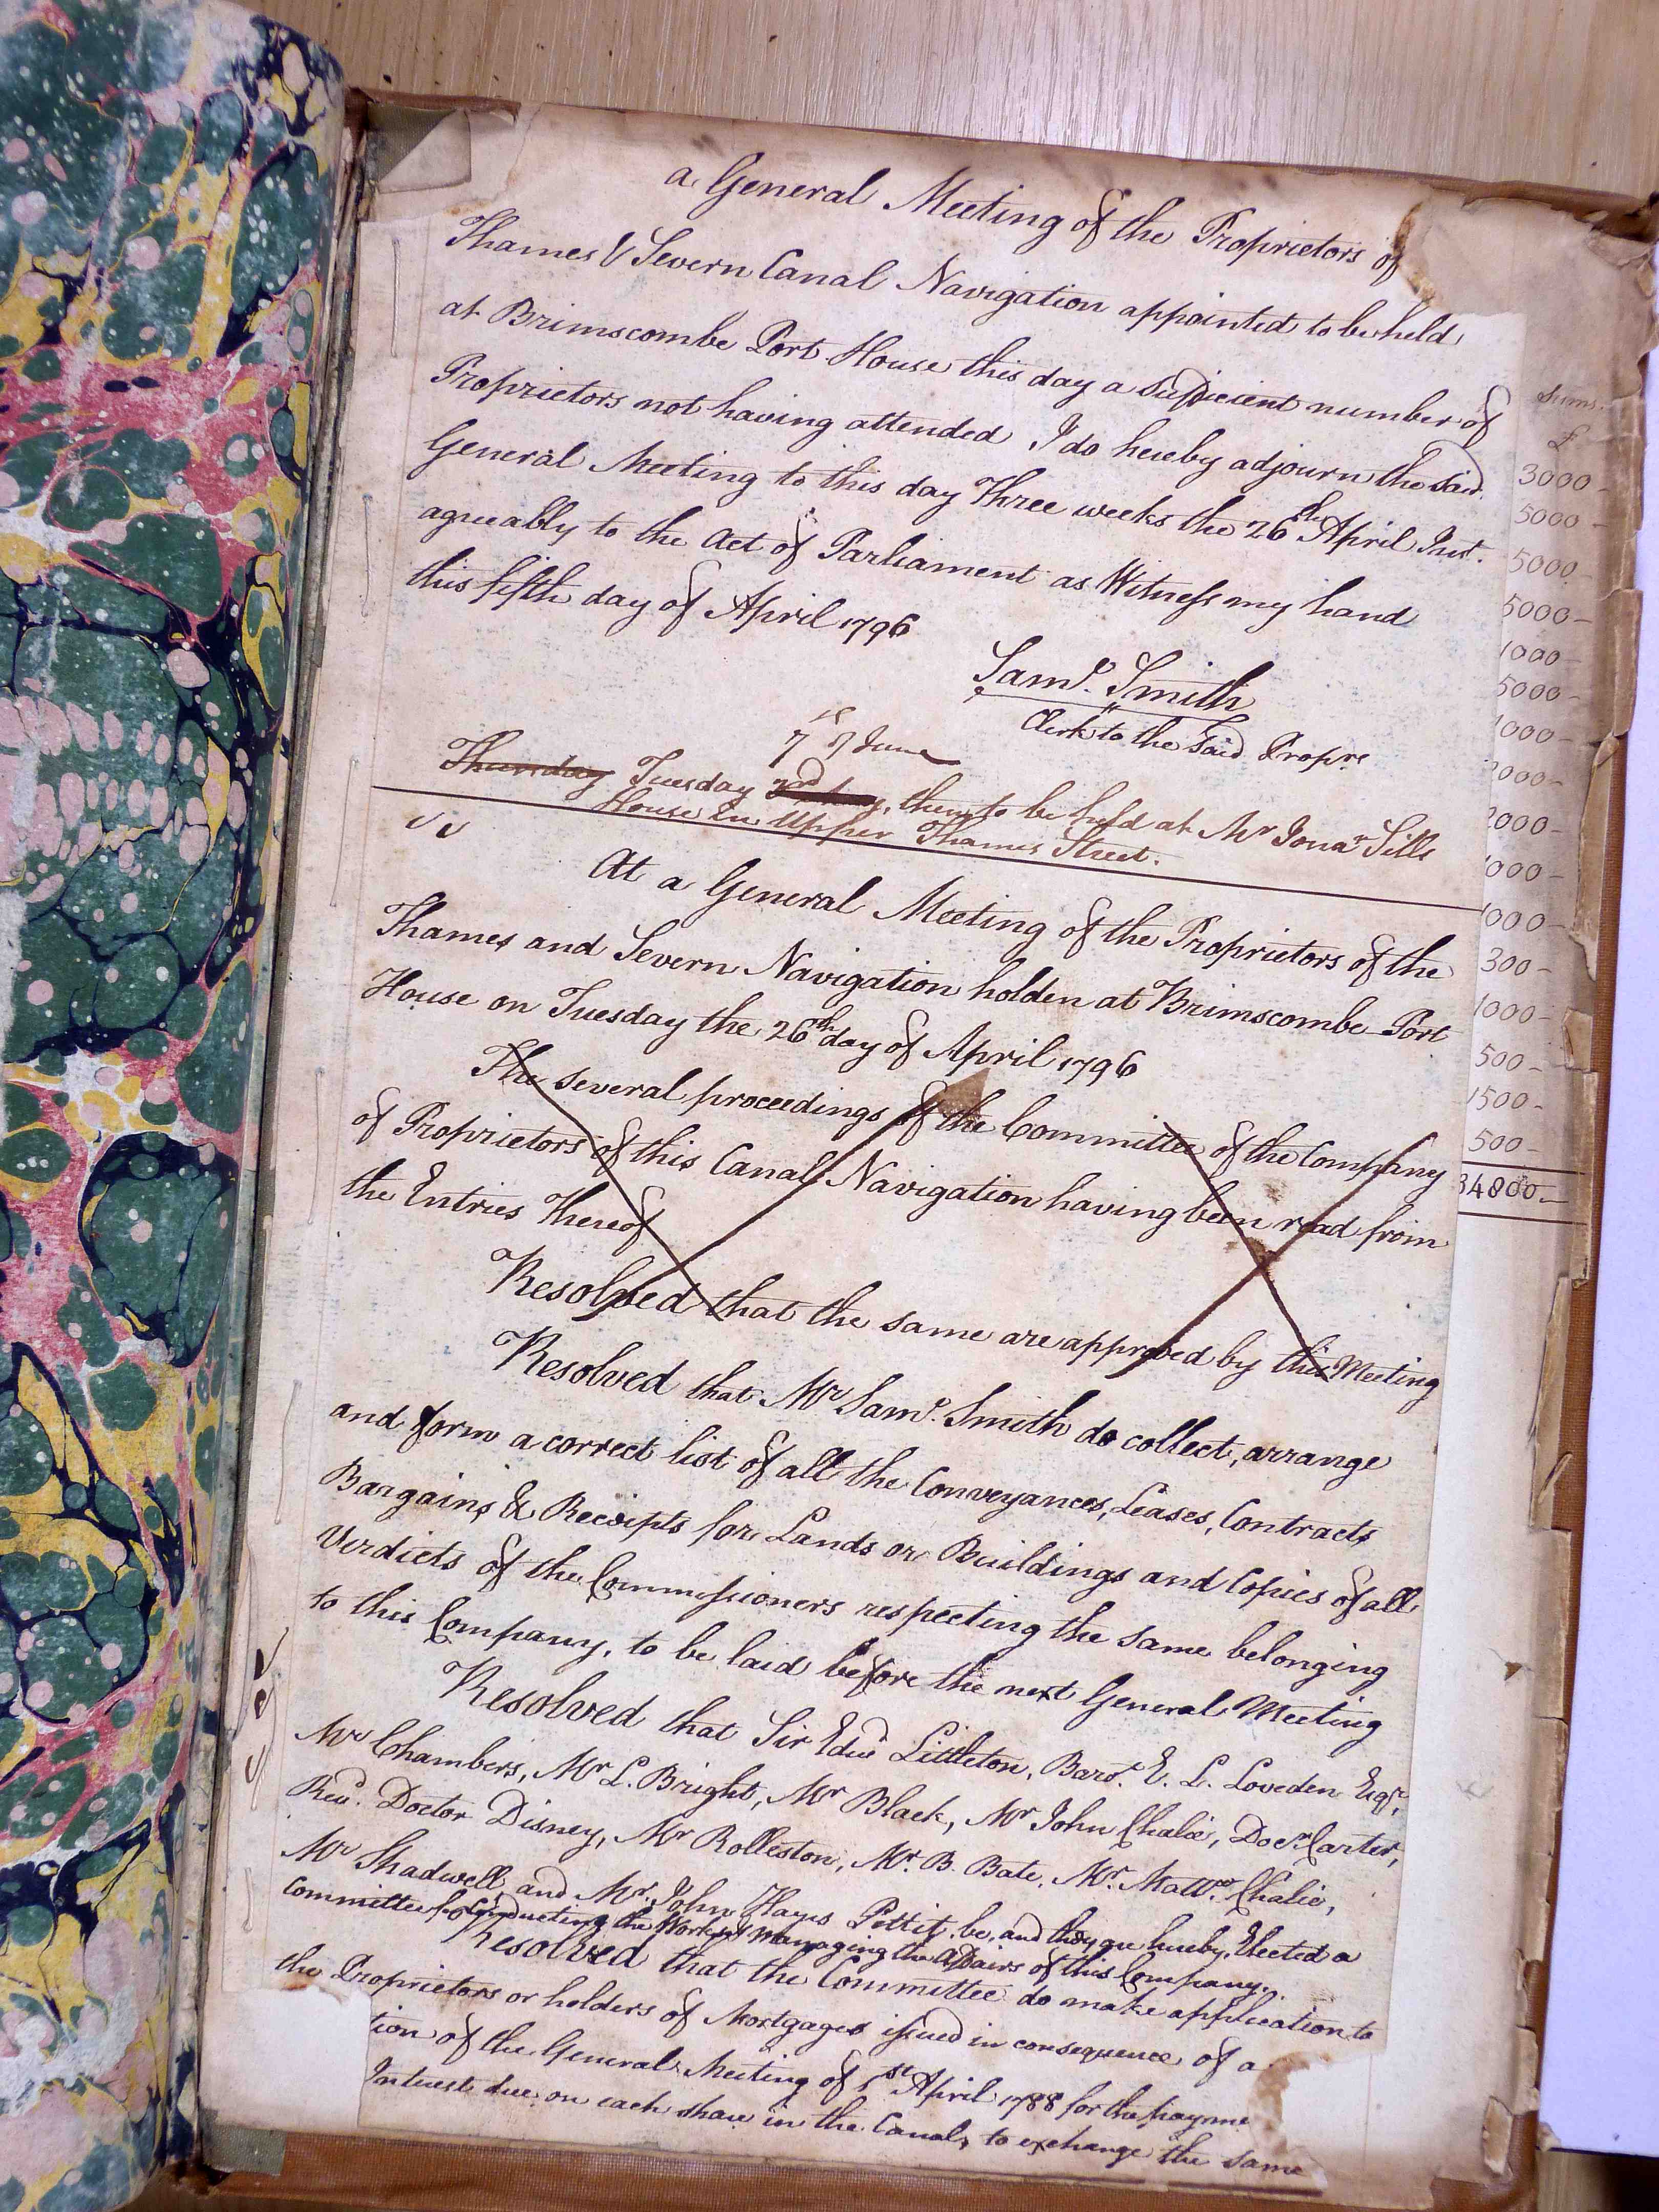 a General Meeting of the Proprietors of
Thames & Severn Canal Navigation appointed to be held
at Brimscombe Port House this day a sufficient number of
Proprietors not having attended I do hereby adjourn the said
General Meeting to this day Three weeks the 26th April Inst.
agreeably to the Act of Parliament as Witness my hand
this fifth day of April 1796
Saml. Smith
Clerk to the said Proprs
7th June
Thursday Tuesday 3rd May, then to be held at Mr Jonan Sills
House in Upper Thames Street.
At a General Meeting of the Proprietors of the
Thames and Severn Navigation holden at Brimscombe Port
House on Tuesday the 26th day of April 1796
The several proceedings of the Committee of the Company
of Proprietors of this Canal Navigation having been read from
the Entries thereof
Resolved that the same are approved by this Meeting
Resolved that Mr Saml. Smith do collect, arrange
and form a correct list of all the Conveyances, Leases, Contracts
Bargains & Receipts for Lands or Buildings and Copies of all
Verdicts of the Commissioners respecting the same belonging
to this Company, to be laid before the next General Meeting
Resolved that Sir Edwd Littleton, Bart. E. L. Loveden Esqr,
Mr Chambers, Mr L. Bright, Mr Black, Mr John Chalié, Docr Carter,
Revd. Doctor Disney, Mr Rolleston, Mr. B. Bate, Mr. Mattw. Chalié,
Mr Shadwell, and Mr. John Hayes Pettit, be, and they are hereby, Elected a
Committee for Conducting the Works & Managing the Affairs of this Company.
Resolved that the Committee do make application to
the Proprietors or holders of Mortgages issued in consequence of a
tion of the General Meeting of 1st April 1788 for the payme
Interest due on each share in the Canal, to exchange the same
Sums.
£
3000 -
5000 -
5000 -
5000 -
1000 -
5000 -
000 -
000 -
000 -
000 -
000 -
300 -
1000 -
500 -
1500 -
500 -
34800 -